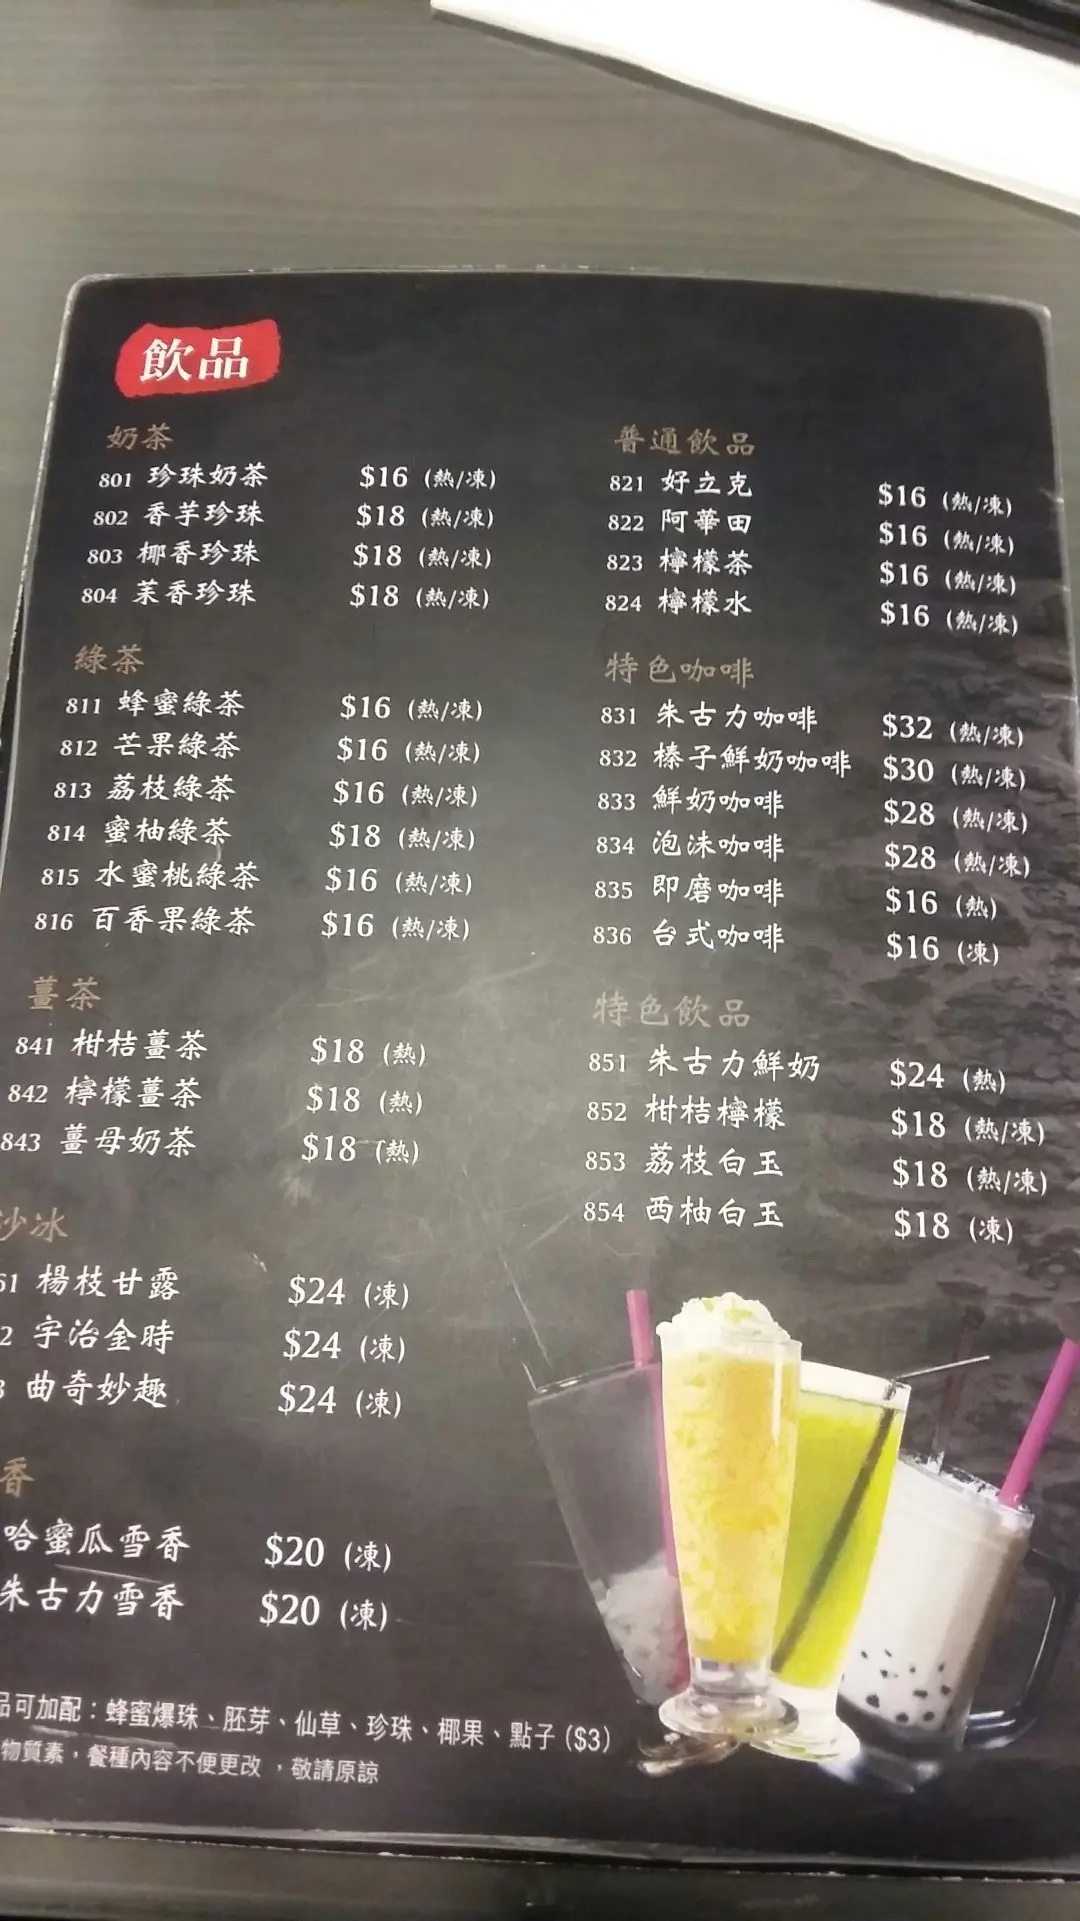 飲品
奶茶
801 珍珠奶茶 $16 (熱/凍)
802 香芋珍珠 $18 (熱/凍)
803 椰香珍珠 $18 (熱/凍)
804 茉香珍珠 $18 (熱/凍)
綠茶
811 蜂蜜綠茶 $16 (熱/凍)
812 芒果綠茶 $16 (熱/凍)
813 荔枝綠茶 $16 (熱/凍)
814 蜜柚綠茶 $18 (熱/凍)
815 水蜜桃綠茶 $16 (熱/凍)
816 百香果綠茶 $16 (熱/凍)
薑茶
841 柑桔薑茶 $18 (熱)
842 檸檬薑茶 $18 (熱)
843 薑母奶茶 $18 (熱)
沙冰
61 楊枝甘露 $24 (凍)
2 宇治金時 $24 (凍)
3 曲奇妙趣 $24 (凍)
香
哈蜜瓜雪香 $20 (凍)
朱古力雪香 $20 (凍)
普通飲品
821 好立克 $16 (熱/凍)
822 阿華田 $16 (熱/凍)
823 檸檬茶 $16 (熱/凍)
824 檸檬水 $16 (熱/凍)
特色咖啡
831 朱古力咖啡 $32 (熱/凍)
832 榛子鮮奶咖啡 $30 (熱/凍)
833 鮮奶咖啡 $28 (熱/凍)
834 泡沫咖啡 $28 (熱/凍)
835 即磨咖啡 $16 (熱)
836 台式咖啡 $16 (凍)
特色飲品
851 朱古力鮮奶 $24 (熱)
852 柑桔檸檬 $18 (熱/凍)
853 荔枝白玉 $18 (熱/凍)
854 西柚白玉 $18 (凍)
品可加配：蜂蜜爆珠、胚芽、仙草、珍珠、椰果、點子 ($3)
物質素，餐種內容不便更改，敬請原諒